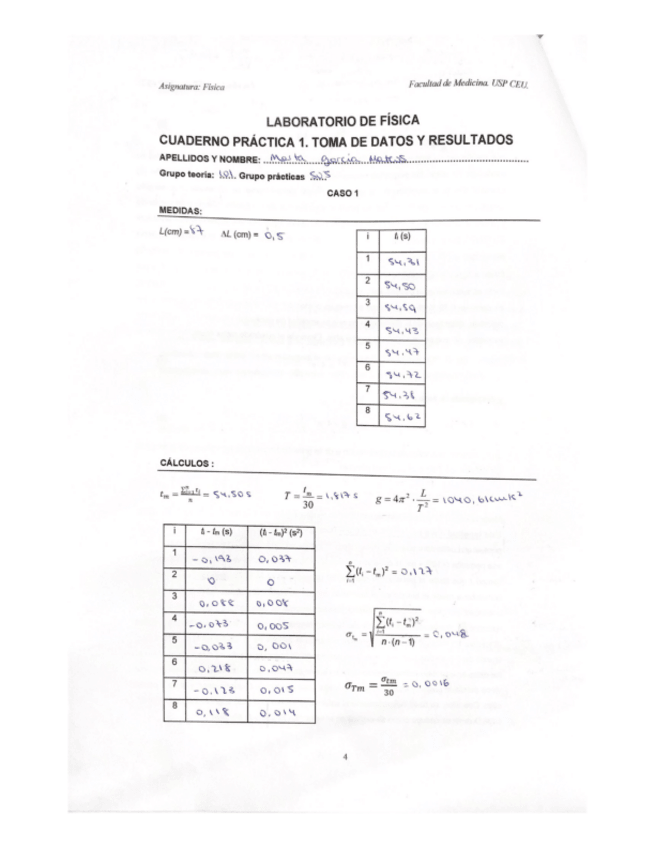 Asignatura: Física
Facultad de Medicina. USP CEU.
LABORATORIO DE FÍSICA
CUADERNO PRÁCTICA 1. TOMA DE DATOS Y RESULTADOS
APELLIDOS Y NOMBRE: Marta García
Grupo teoria: 101. Grupo prácticas
CASO 1
MEDIDAS:
L(cm) = 87 ΔL (cm) = 0,5
i tᵢ (s)
1 54.31
2 54,50
3 54.59
4 54.43
5 54.47
6 54.72
7 54.38
8 54.62
CÁLCULOS :
tₘ = = 54.50 s T = tₘ/30 = 1,817 s g = 4π² · L/T² = 1040,61 cm/s²
i tᵢ - tₘ (s) (tᵢ - tₘ)² (s²)
1 -0,193 0,037
2 0 0
3 0,088 0,008
4 -0,073 0,005
5 -0,033 0,001
6 0,218 0,047
7 -0,123 0,015
8 0,118 0,014
∑(tᵢ - tₘ)² = 0,127
σₜₘ = √(∑(tᵢ - tₘ)² / n·(n-1)) = 0,048
σTm = σtm/30 = 0,0016
4